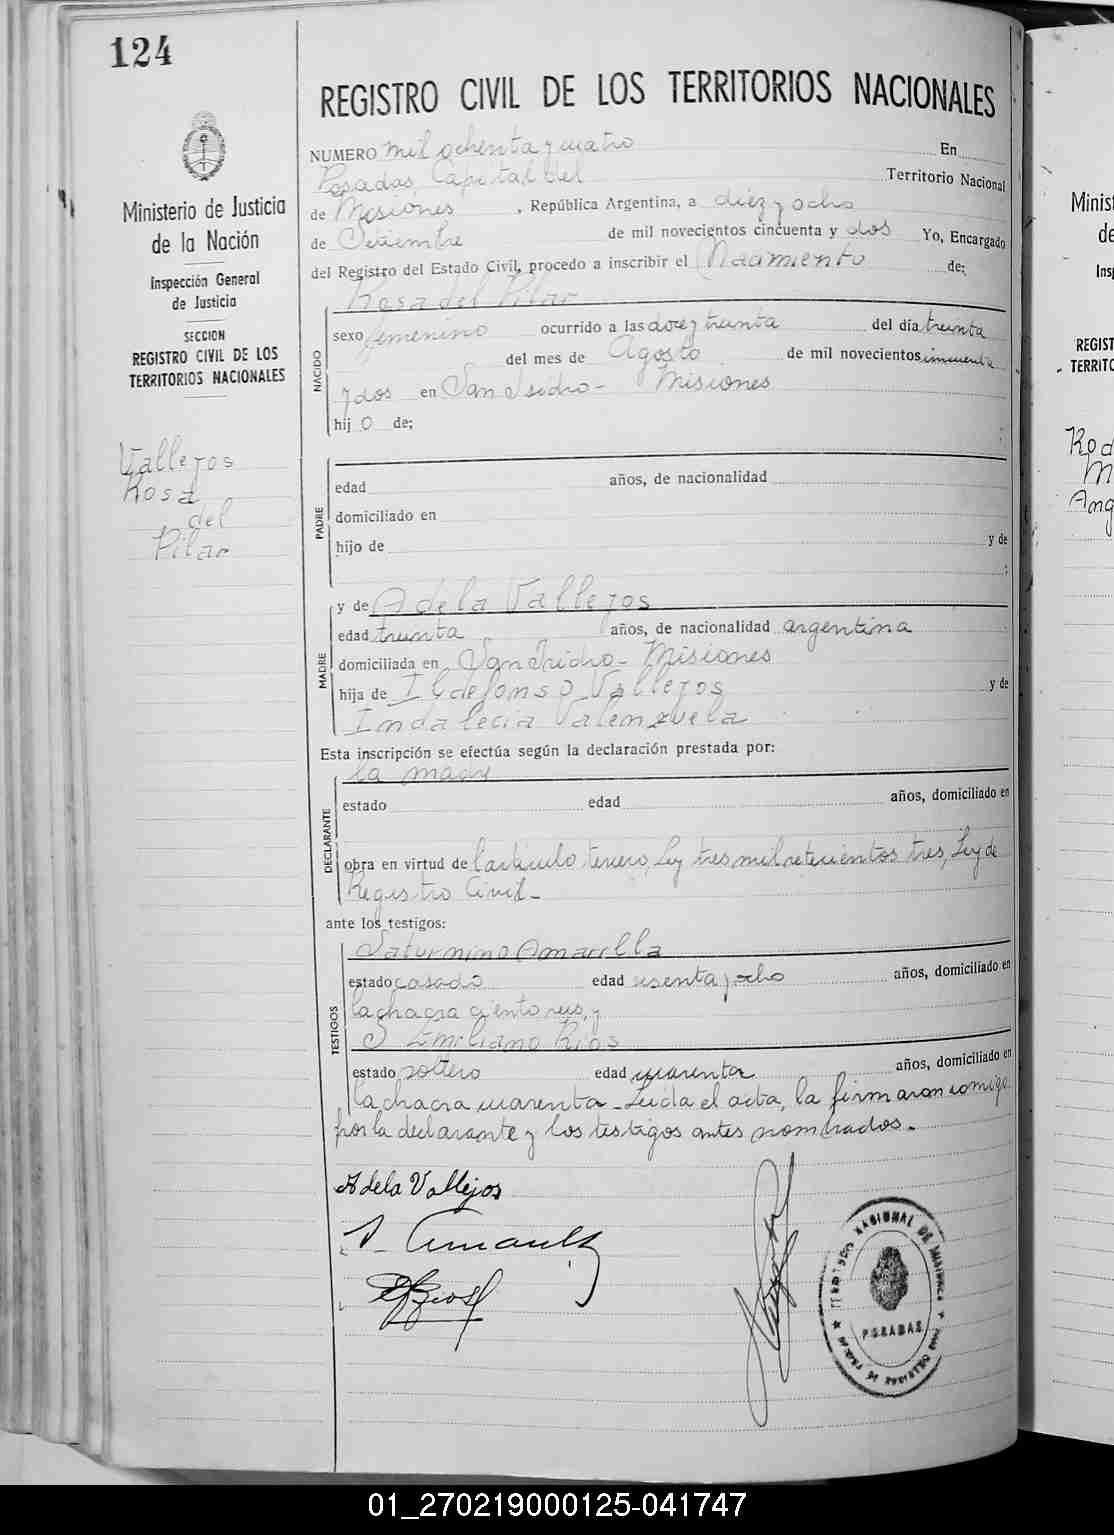 124
REGISTRO CIVIL DE LOS TERRITORIOS NACIONALES
NUMERO mil ochenta y cuatro En
Posadas, Capital del Territorio Nacional
de Misiones, República Argentina, a diez y ocho
de Setiembre de mil novecientos cincuenta y dos Yo, Encargado
del Registro del Estado Civil, procedo a inscribir el Nacimiento de:
Rosa del Pilar
NACIDO
sexo femenino ocurrido a las doce y treinta del día treinta
del mes de Agosto de mil novecientos cincuenta
y dos en San Isidro - Misiones
hij o de;
PADRE
edad años, de nacionalidad
domiciliado en
hijo de y de
;
MADRE
y de Adela Vallejos
edad treinta años, de nacionalidad argentina
domiciliada en San Isidro - Misiones
hija de Ildefonso Vallejos y de
Indalecia Valenzuela
Esta inscripción se efectúa según la declaración prestada por:
la madre
DECLARANTE
estado edad años, domiciliado en
obra en virtud de l artículo tercero, Ley tres mil setecientos tres, Ley de
Registro Civil.-
ante los testigos:
TESTIGOS
Saturnino Amarilla
estado casado edad sesenta y ocho años, domiciliado en
la chacra ciento seis, y
Emiliano Rios
estado soltero edad cuarenta años, domiciliado en
la chacra cuarenta - Leída el acta, la firmaron comigo
por la declarante y los testigos antes nombrados.
Adela Vallejos
Ministerio de Justicia
de la Nación
Inspección General
de Justicia
SECCION
REGISTRO CIVIL DE LOS
TERRITORIOS NACIONALES
Vallejos
Rosa
del
Pilar
POSADAS
Minist
de
Insp
REGIST
TERRITO
Rod
M
Ang
01_270219000125-041747